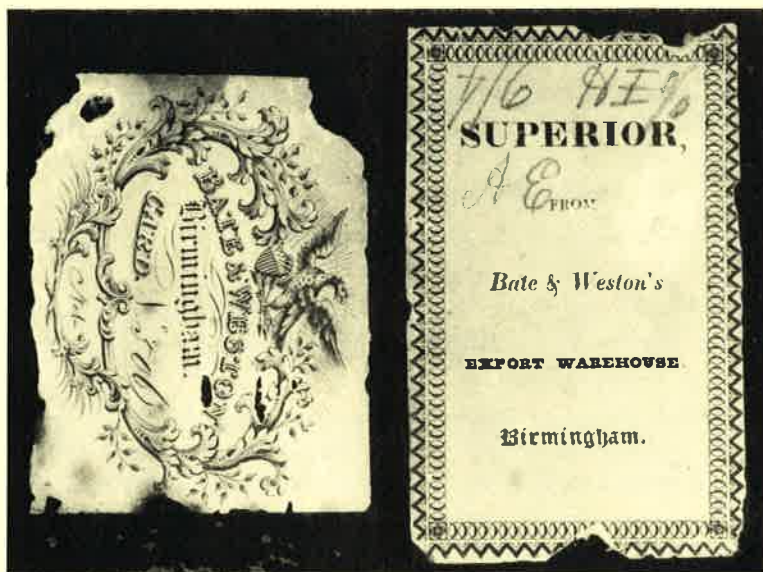 BATE & WESTON
Birmingham.
CARD
7/6
SUPERIOR,
A E
FROM
Bate & Weston's
EXPORT WAREHOUSE
Birmingham.